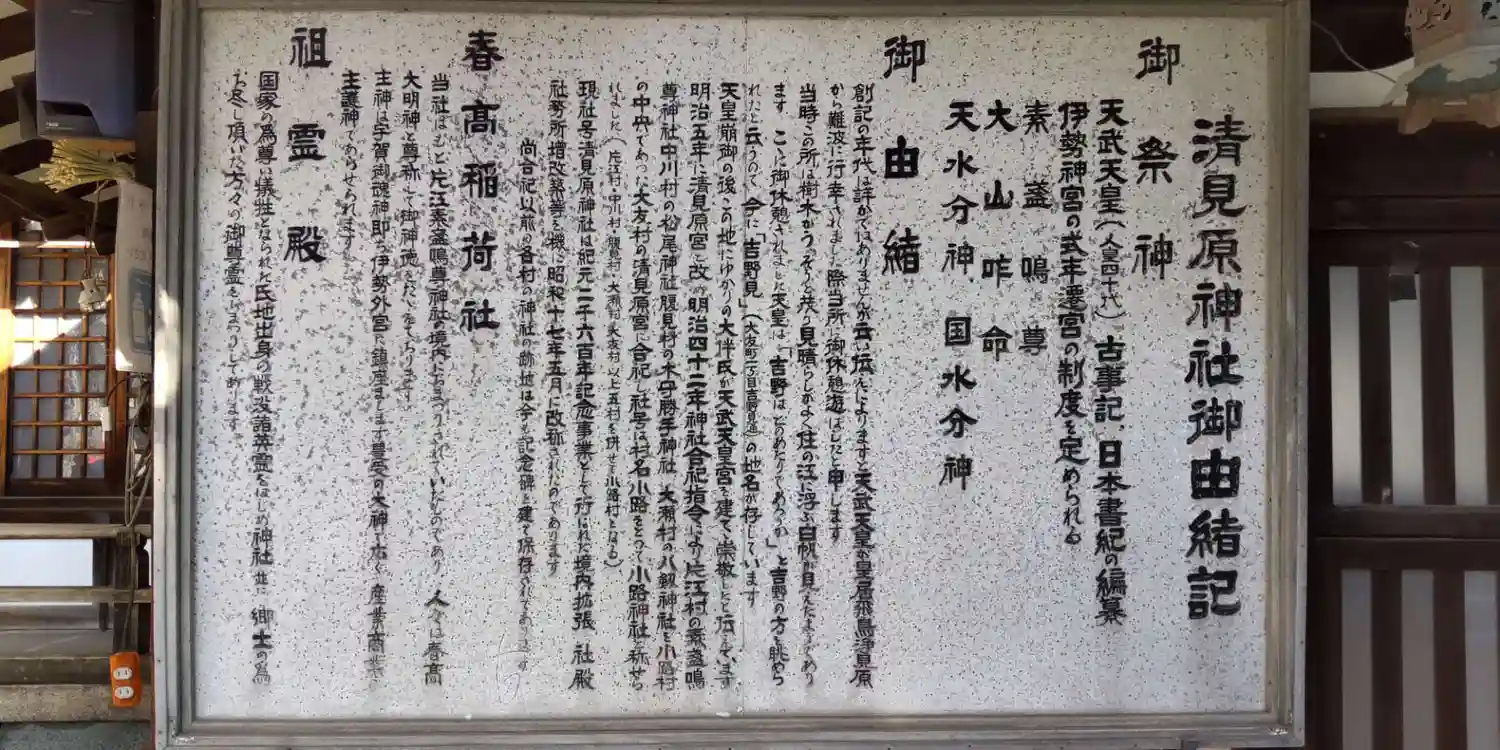 清見原神社御由結記
御祭神
天武天皇(人皇四十代) 古事記、日本書紀の編纂
伊勢神宮の式年遷宮の制度を定められる
素盞鳴尊
大山咋命
天水分神 国水分神
御由緒
創記の年代は詳かではありませんが云い伝えによりますと天武天皇が皇居飛鳥浄見原
から難波に行幸されました際当所に御休憩遊ばしたと申します
当時この所は樹木がうっそうと茂り見晴らしがよく住の江に浮ぶ白帆が見えたようであり
ます こゝに御休憩されました天皇は「吉野はどのあたりであろうか」と吉野の方を眺めら
れたと云うので今に「吉野見」(大友町一丁目吉野見通)の地名が存しています
天皇崩御の後この地にゆかりの大伴氏が天武天皇宮を建てゝ崇敬したと伝えています
明治五年に清見原宮と改め明治四十二年神社合祀指令により片江村の素盞鳴
尊神社中川村の松尾神社腹見村の木守勝手神社 大瀬村の八劔神社を小路村
の中央であった大友村の清見原宮に合祀し社号は村名小路をとって小路神社と称せら
れました(片江村・中川村 腹見村・大瀬村・大友村・以上五村を併せて小路村となる)
現社号清見原神社は紀元二千六百年記念事業として行われた境内拡張 社殿
社務所増改築等を機に昭和十七年五月に改称されたのであります
尚合祀以前の各村の神社の跡地は今も記念碑を建て保存されてあります
春高稲荷社
当社はもと片江素盞鳴尊神社の境内におまつりされていたものであり 人々は春高
大明神と尊称して御神徳をたたえております
主神は宇賀御魂神即ち伊勢外宮に鎮座まします豊受の大神で広く産業商業
主護神であらせられます
祖霊殿
国家の為尊い犠牲となられた氏地出身の戦没諸英霊をはじめ神社並に 郷土の為
お尽し頂いた方々の御尊霊をおまつりしてあります